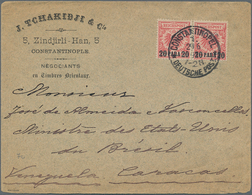 J. TCHAKIDJI & Co.
5, Zindjirli-Han, 5
CONSTANTINOPLE
NÉGOCIANTS
en Timbres Orientaux
CONSTANTINOPEL
DEUTSCHE POST
20 PARA 20 20 PARA 20
Monsieur
José de Almeida e Vasconcellos
Ministre des États-Unis
du Brésil
Venezuela Caracas